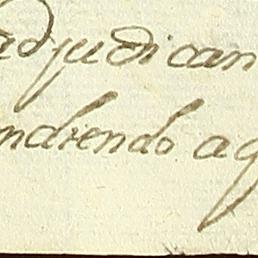 adjudican
ndiendo aq